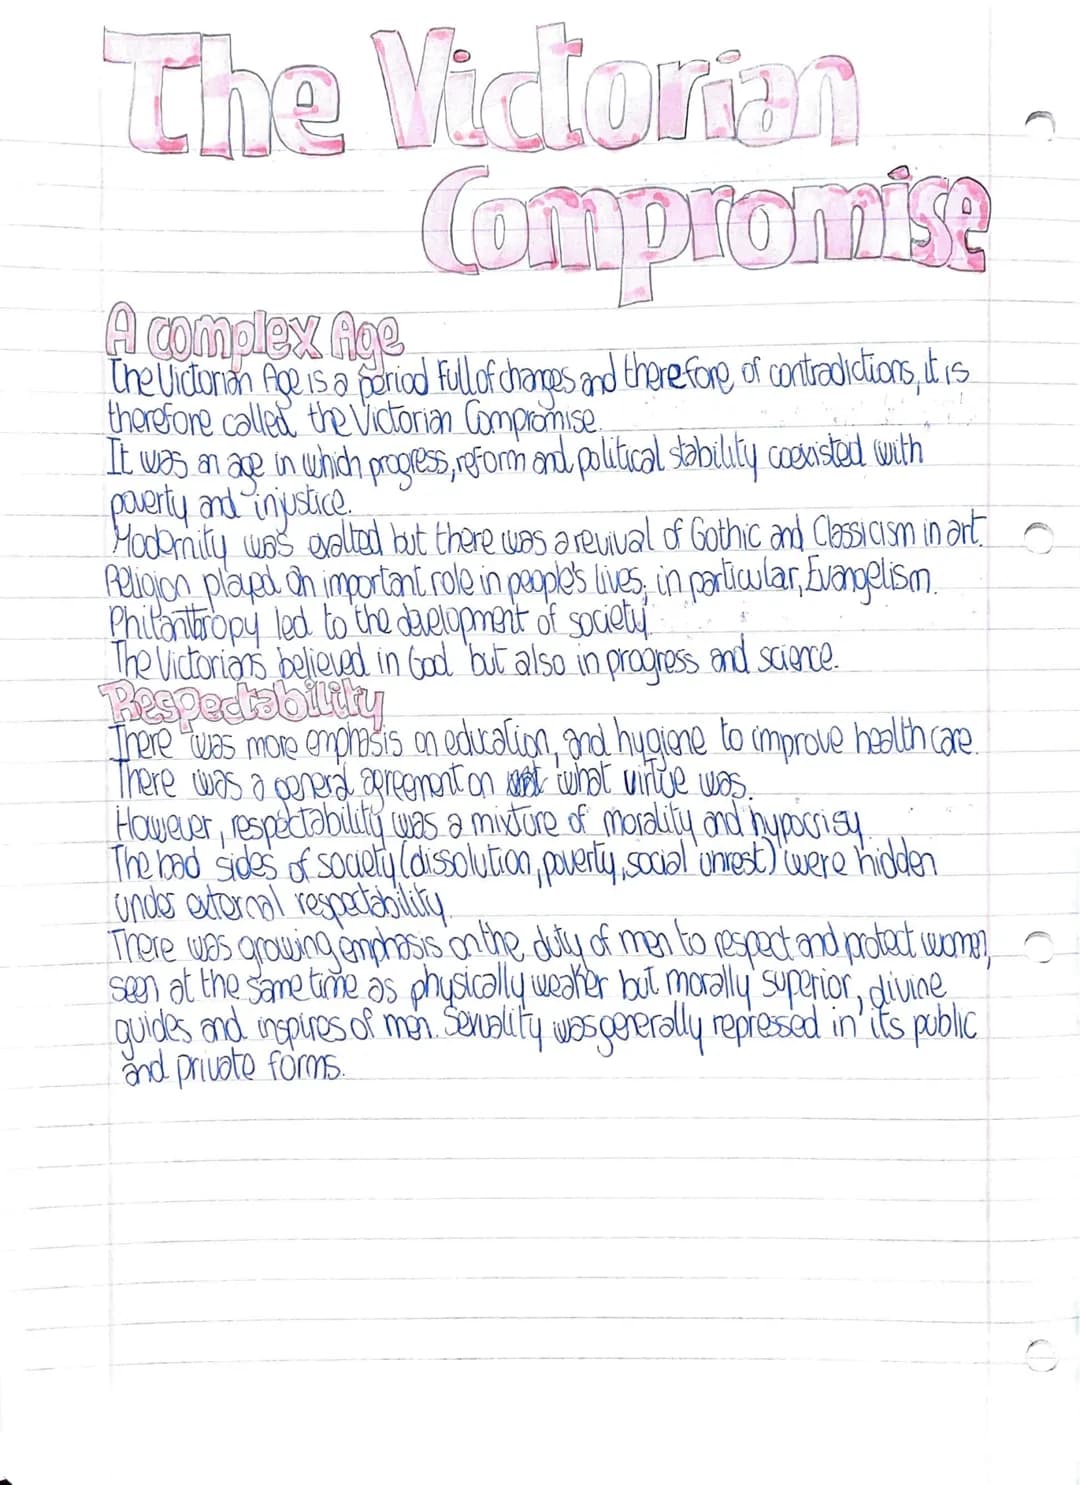 The Victorian
Compromise
A complex Age
The Victorian Age is a period full of changes and therefore of contradictions, it is
therefore called the Victorian Compromise.
It was an age in which progress, reform and political stability coexisted with
poverty and injustice.
Modernity was exalted but there was a revival of Gothic and Classicism in art.
Religion played an important role in people's lives, in particular, Evangelism.
Philanthropy led to the development of society.
The Victorians believed in God but also in progress and science.
Respectability
There was more emphasis on education, and hygiene to improve health care.
There was a general agreement on what virtue was.
However, respectability was a mixture of morality and hypocrisy.
The bad sides of society (dissolution, poverty, social unrest) were hidden
under external respectability.
There was growing emphasis on the duty of men to respect and protect women,
seen at the same time as physically weaker but morally superior, divine
guides and inspires of men. Sexuality was generally repressed in its public
and private forms.